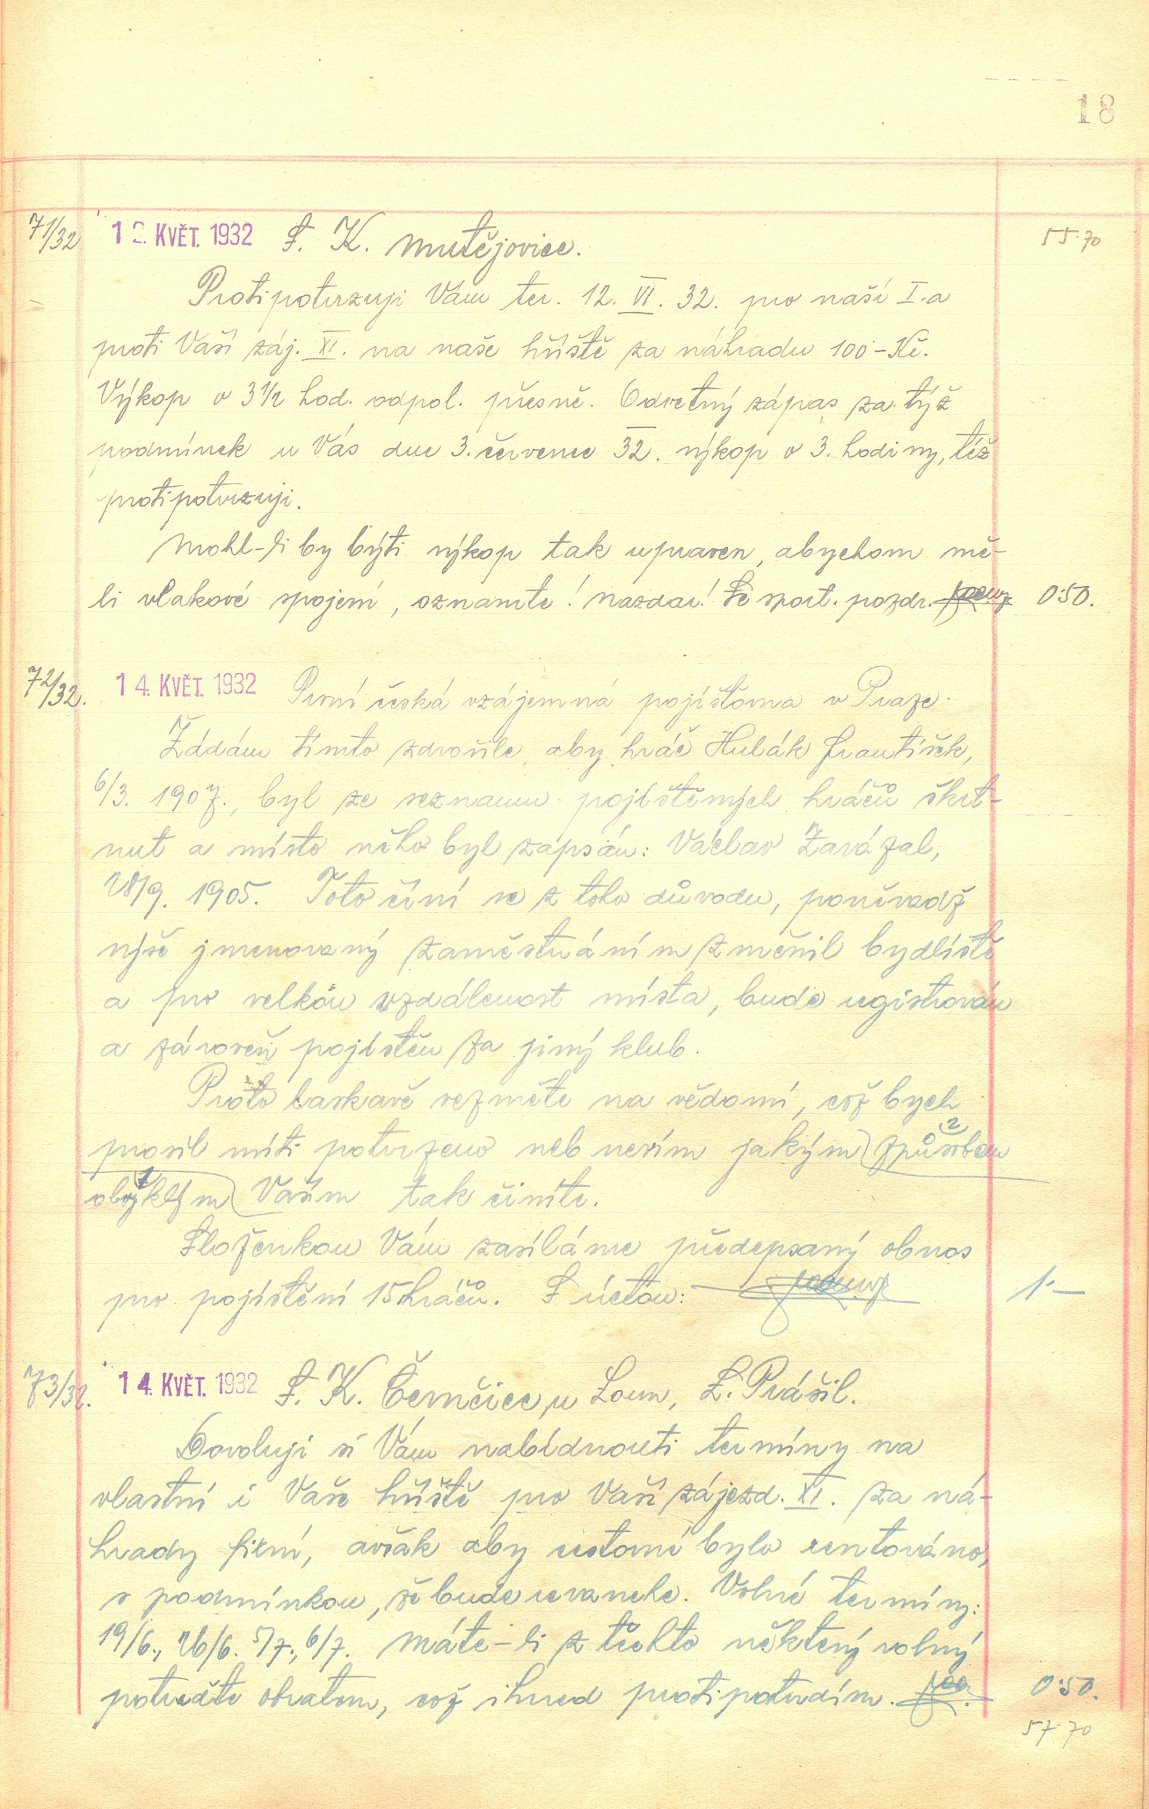 18
71/32 12. KVĚT. 1932 S. K. Mutějovice. 55·70
Protipotvrzuji Vám ter. 12. VI. 32. pro naší I.a
proti Vaší záj. XI. na naše hřiště za náhradu 100–Kč.
Výkop o 3½ hod. odpol. přesně. Odvetný zápas za týž
podmínek u Vás dne 3. července 32. výkop o 3. hodiny, též
protipotvrzuji.
Mohl-li by býti výkop tak upraven, abychom mě-
li vlakové spojení, oznamte! Nazdar! Se sport. pozdr. 0·50.
72/32. 14. KVĚT. 1932 První česká vzájemná pojišťovna v Praze.
Žádám tímto zdvořile, aby hráč Hulák František,
6/3. 1907., byl ze seznamu pojištěných hráčů škrt-
nut a místo něho byl zapsán: Václav Zarázal,
28/9. 1905. Toto činí se z toho důvodu, poněvadž
výše jmenovaný zaměstnáním změnil bydliště
a pro velkou vzdálenost místa, bude registrován
a zároveň pojištěn za jiný klub.
Proto laskavě vezměte na vědomí, což bych
prosil míti potvrzeno neb nevím jakým způsobem 2
obvyklým 1 Vaším tak činíte.
Složenkou Vám zasíláme předepsaný obnos
pro pojištění 15 hráčů. S úctou: 1·–
73/32. 14. KVĚT. 1932 S. K. Černčice, u Loun, L. Prášil.
Dovoluji si Vám nabídnouti termíny na
vlastní i Vaše hřiště pro Vaší zájezd. XI. za ná-
hrady fixní, avšak aby cestovné bylo rentováno,
s podmínkou, že bude revanche. Volné termíny:
19/6., 26/6. 5/7., 6/7. Máte-li z těchto některý volný
potvrďte obratem, což ihned protipotvrdím. 0·50.
57·70